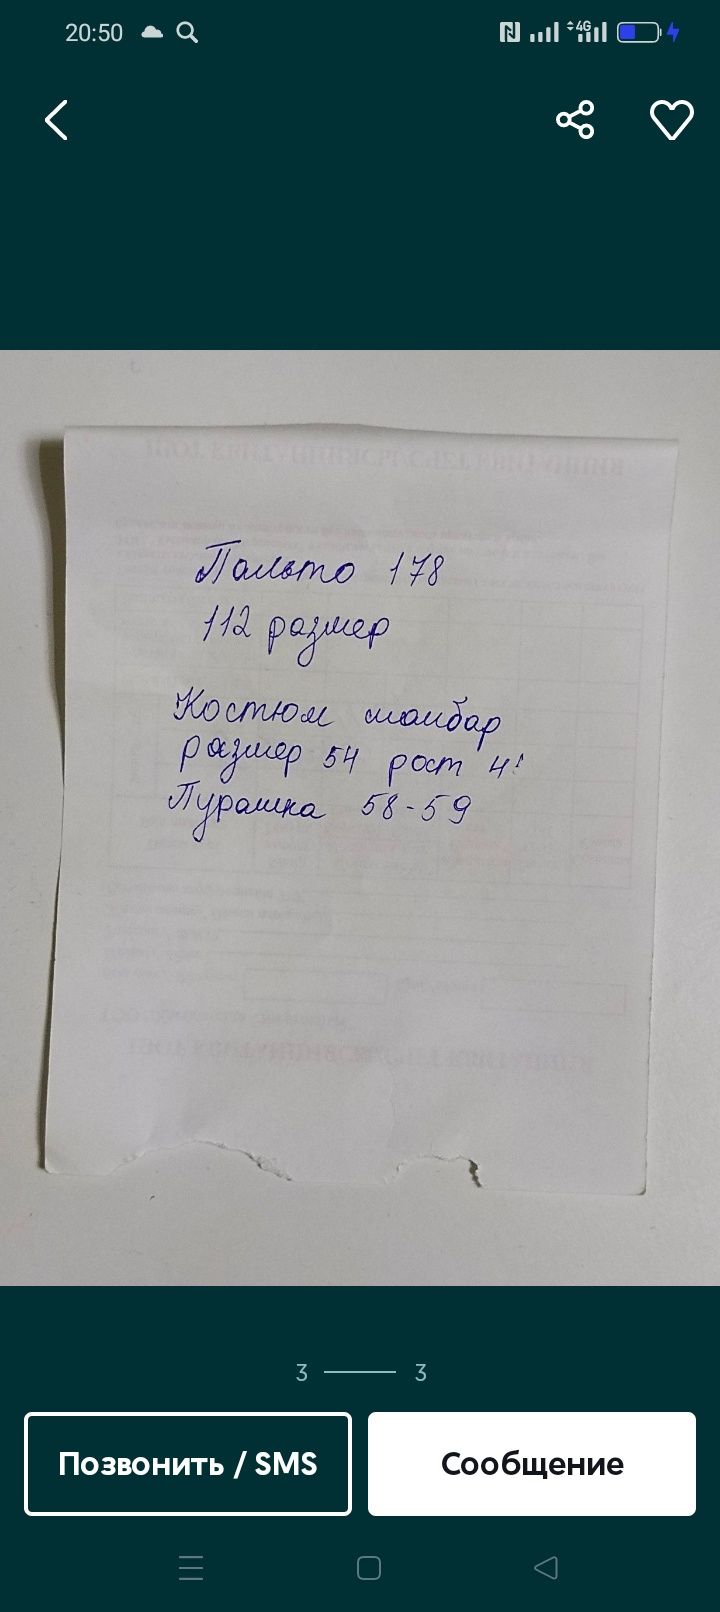 20:50
4G
Пальто 178
112 размер
Костюм шамбар
размер 54 рост 4
Пурашка 58-59
3 3
Позвонить / SMS
Сообщение